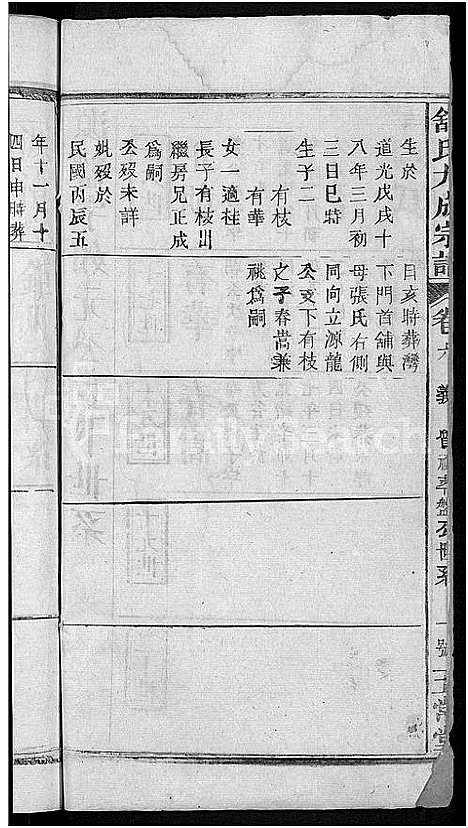 舒氏九成宗譜
卷六
義
一號
生於
道光戊戌十
八年三月初
三日巳時
生子二
有枝
有華
女一適桂
長子有枝出
繼房兄正成
為嗣
公歿未詳
妣歿於
民國丙辰五
日亥時葬灣
下門首舖與
母張氏右側
同向立源龍
公支下有枝
之子春嵩兼
祧為嗣
年十一月十
四日申時葬
FamilySearch